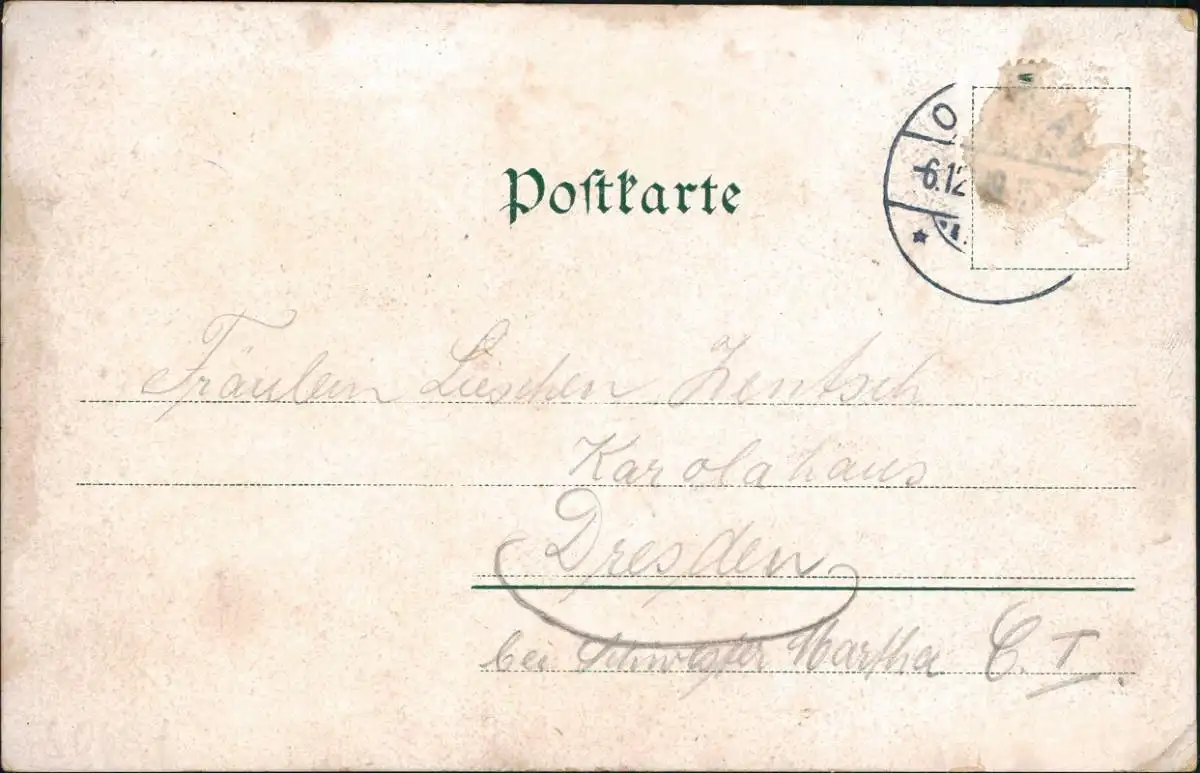 Postkarte
O
-6.12
Fräulein Lieschen Zentsch
Karolahaus
Dresden
bei Schwester Martha C. I.